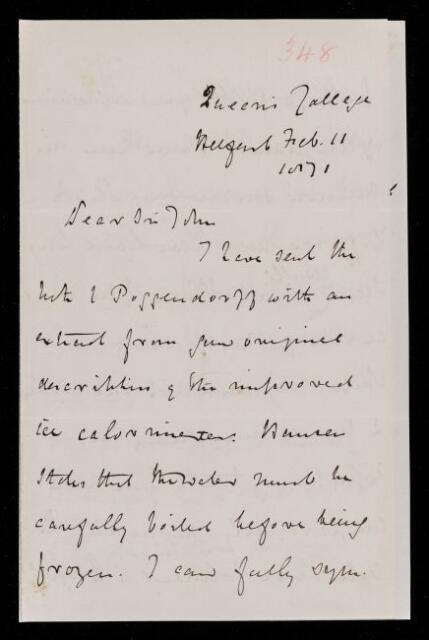 348
Queen's College
Belfast Feb. 11
1871
Dear Sir John
I have sent the
note to Poggendorff with an
extract from your original
description of the improved
ice calorimeter. Bunsen
states that the water must be
carefully boiled before being
frozen. I can fully sym-